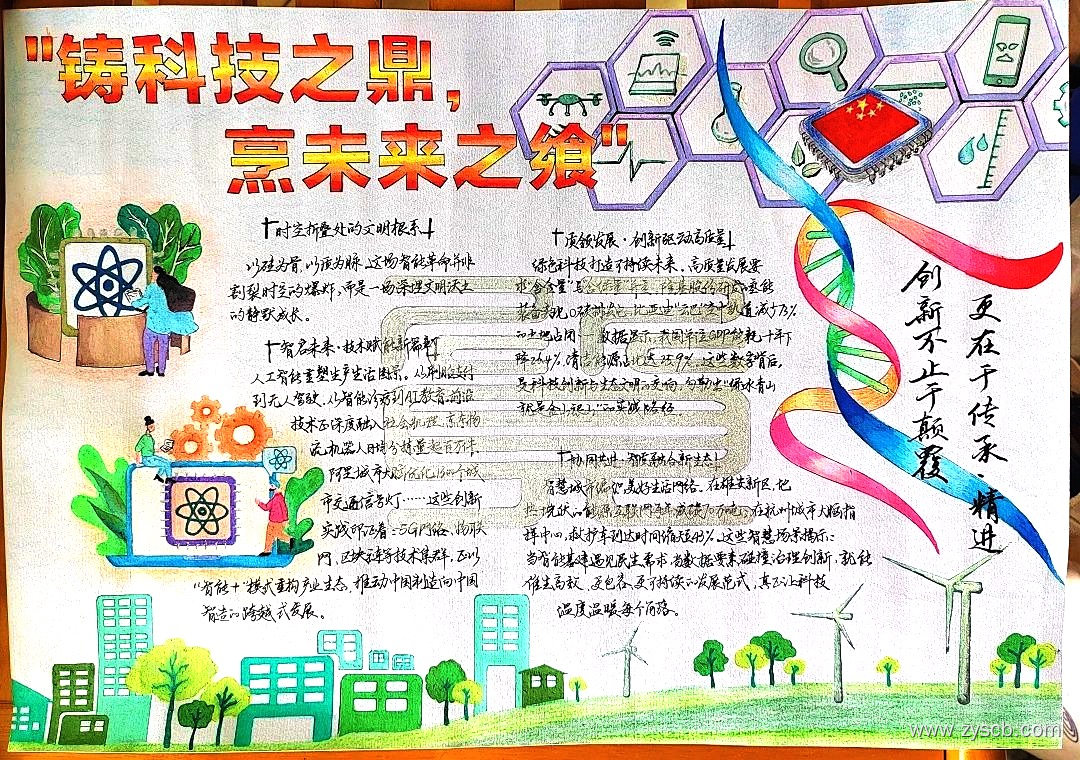 "铸科技之鼎,
烹未来之飨"
时空折叠处的文明根系
以硅为骨,以质为脉,这场智能革命并非
割裂时空的爆炸,而是一场深植文明沃土
的静默成长。
智启未来·技术赋能新篇
人工智能重塑生产生活图景。从刷脸支付
到无人驾驶,从智能诊疗到AI教育,前沿
技术正深度融入社会肌理。京东物
流机器人日均分拣量超百万件,
阿里城市大脑优化1500个城
市交通信号灯……这些创新
实践印证着:5G网络、物联
网、区块链等技术集群,正以
"智能+"模式重构产业生态,推动中国制造向中国
智造的跨越式发展。
质领发展·创新驱动高质量
绿色科技打造可持续未来。高质量发展要
求"含金量"与
装备实现0碳排放,比亚迪"云巴"空中轨道减少73%
的土地占用 数据显示,我国单位GDP能耗十年下
降26.4%,清洁能源占比达25.9%,这些数字背后,
是科技创新与生态文明的交响,勾勒出"绿水青山
就是金山银山"的实践路径
协同共进·智度融合新生态
智慧城市编织美好生活网络。在雄安新区,地
热 能源互联网每年减碳 万吨;在杭州城市大脑指
挥中心,救护车到达时间缩短43%。这些智慧场景揭示:
当智能基建遇见民生需求,当数据要素碰撞治理创新,就能
催生高效、更包容、更可持续的发展范式,真正让科技
温度温暖每个角落。
创新不止于颠覆
更在于传承·精进
www.zyscb.com